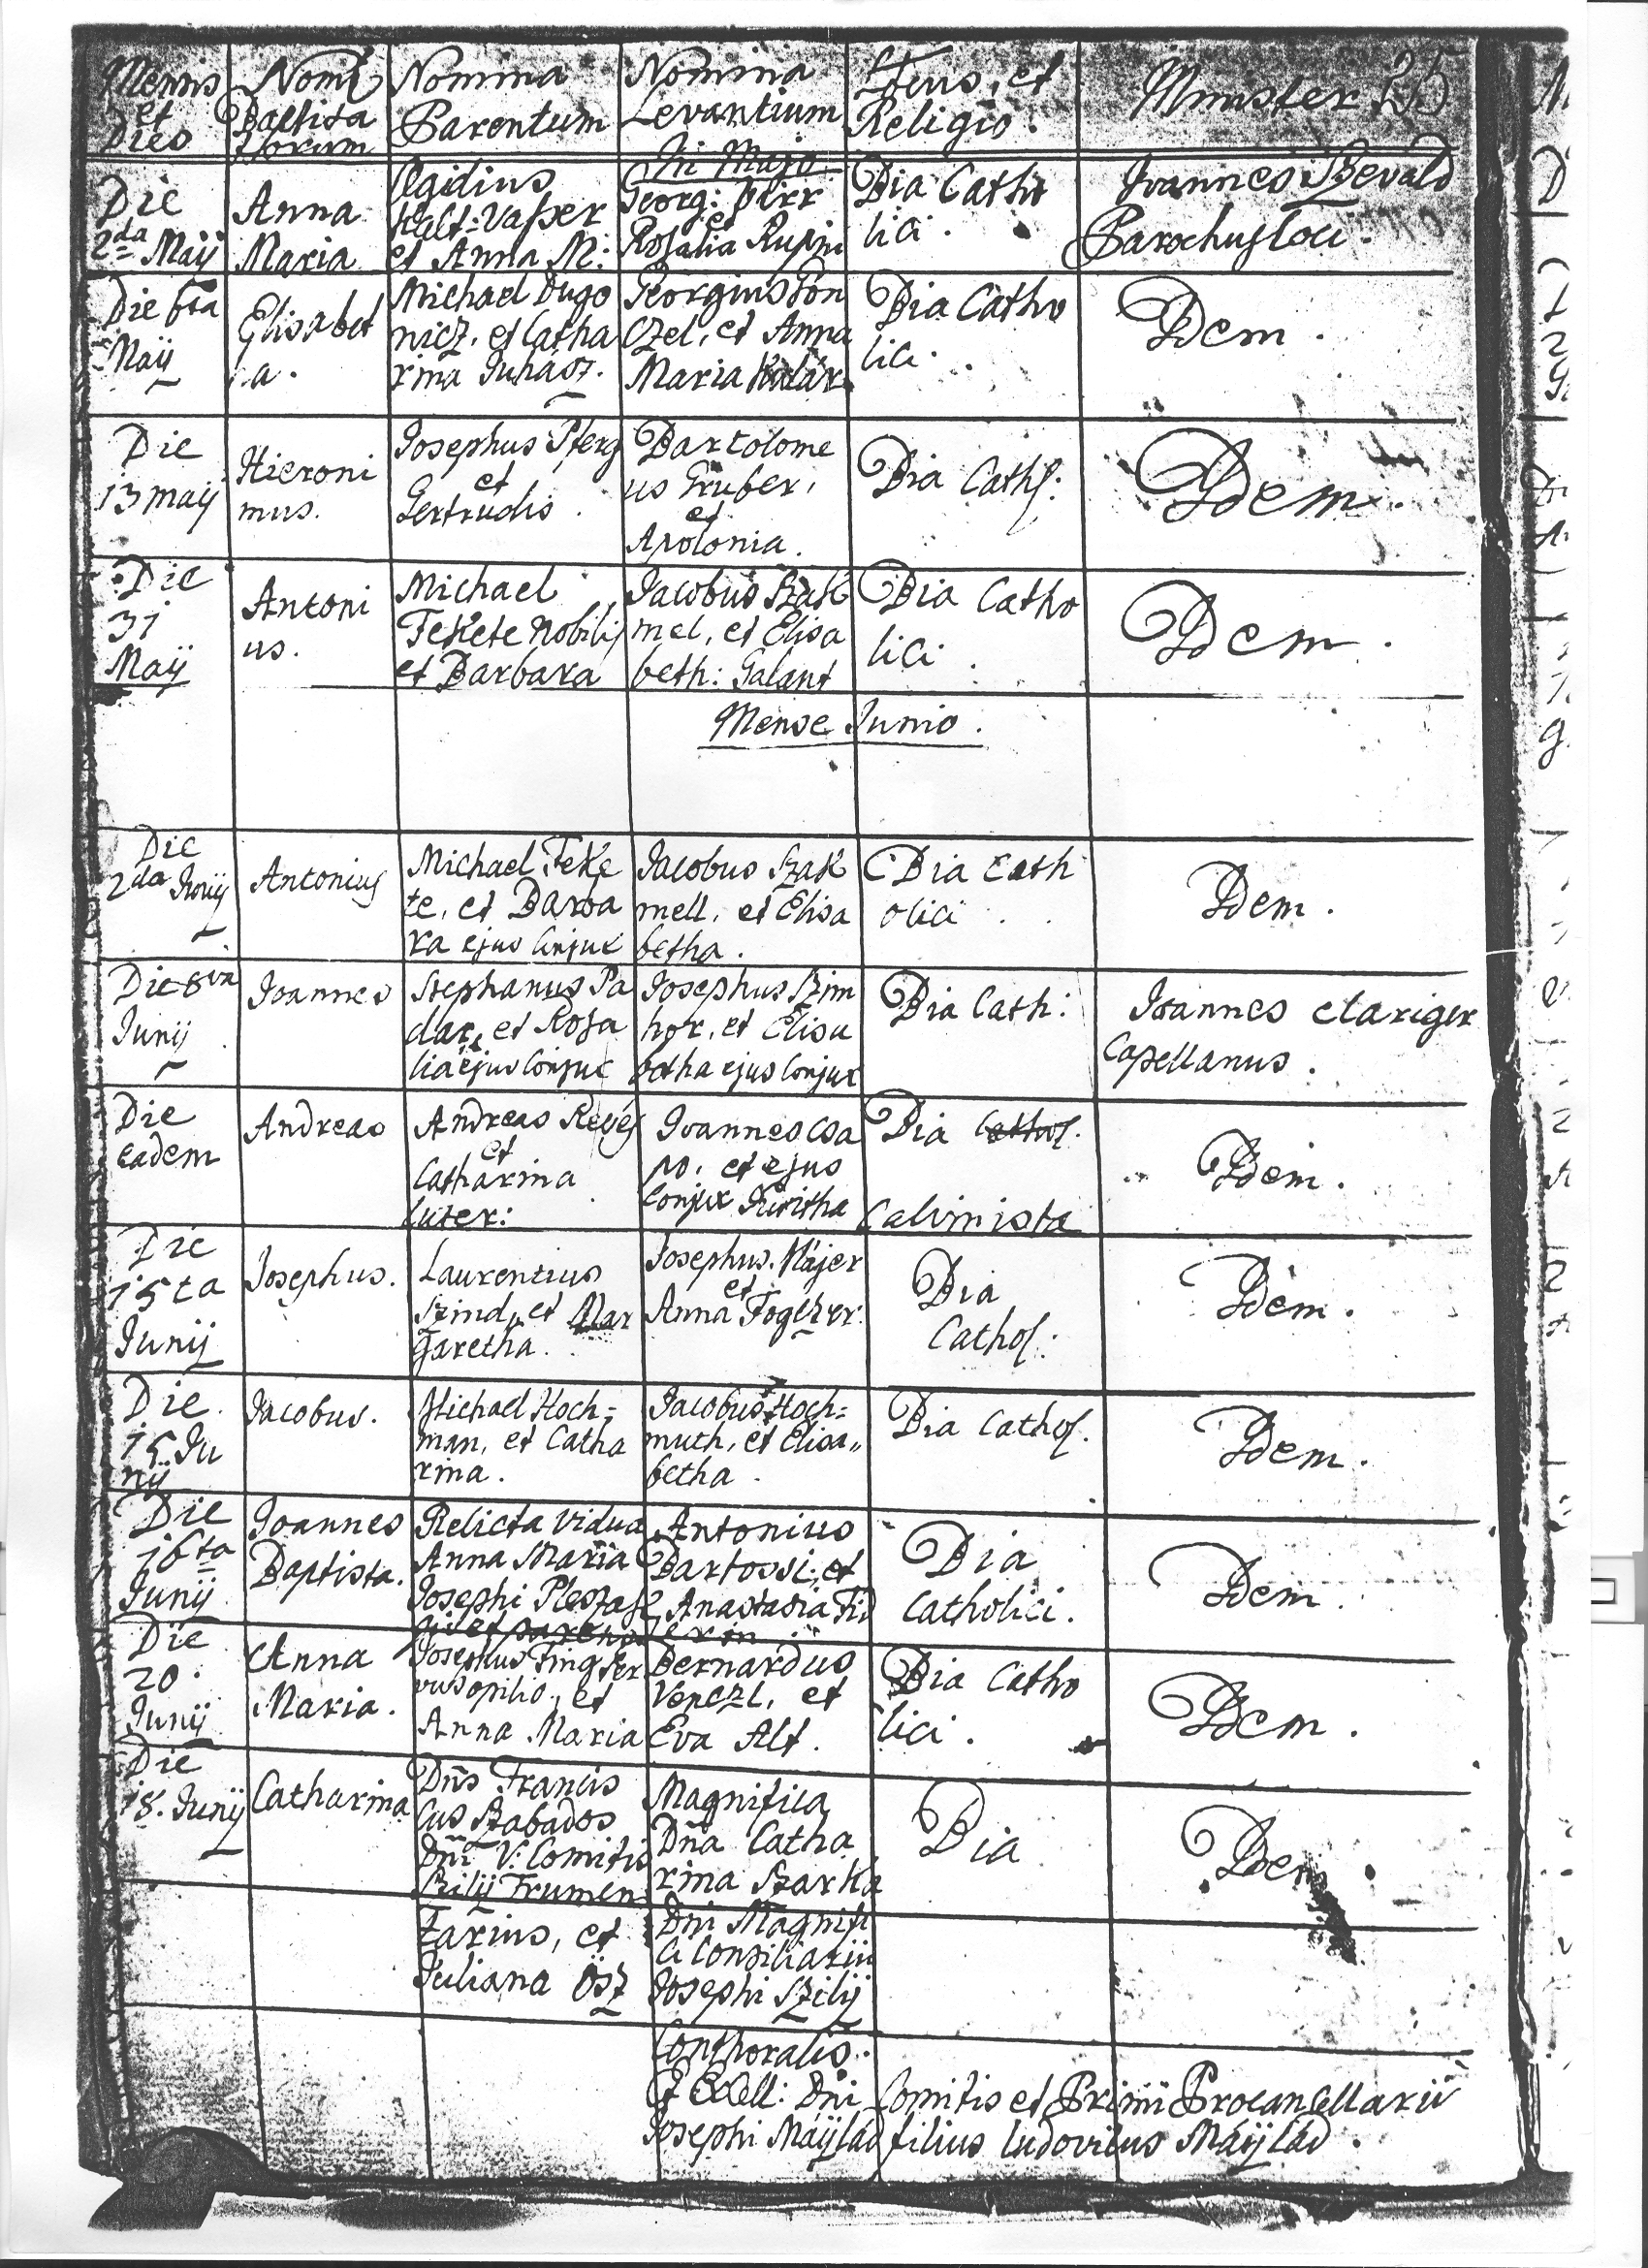 Mensis
et
Dies
Nomē
Baptisa
torum
Nomina
Parentum
Nomina
Levantium
Religio.
Minister 35
In Majo
Die
2da Maij
Anna
Maria
Egidius
Kalt: Vasser
et Anna M:
Georg: Dirr
et
Rosalia
Dia Catho
lici.
Ioannes
Parochus loci.
Die 6ta
Maij
Elisabet
a.
Michael Dugo
nicz, et Catha
rina Juhász.
Georgius Pon
czel, et Anna
Maria
Dia Catho
lici.
Idem.
Die
13 maij
Hieroni
mus.
Josephus
et
Gertrudis.
Bartolome
us Gruber,
et
Apolonia.
Dia Cathl:
Idem.
Die
31
Maij
Antoni
us.
Michael
Fekete Nobilis
et Barbara
Jacobus Szak
mel, et Elisa
beth: Galant
Dia Catho
lici.
Idem.
Mense Junio.
Die
2da Junij
Antonius
Michael Feke
te, et Barba
ra ejus Conjux
Jacobus Szak
mell, et Elisa
betha.
Dia Cath
olici
Idem.
Die 8va
Junij
Ioannes
Stephanus Pa
dar, et Rosa
lia ejus Conjux
Josephus Szim
hor, et Elisa
betha ejus Conjux
Dia Cath:
Ioannes Clariger
Capellanus.
Die
eadem
Andreas
Andreas Révés
et
Catharina
Luter:
Ioannes Csa
po, et ejus
Conjux Juditha
Dia Cathol.
Calvinista
Idem.
Die
15ta
Junij
Josephus.
Laurentius
Szind, et Mar
garetha.
Josephus Májer
et
Anna
Dia
Cathol.
Idem.
Die
15. Ju
nij
Jacobus.
Michael Hoch=
man, et Catha
rina.
Jacobus Hoch=
muth, et Elisa„
betha.
Dia Cathol.
Idem.
Die
16ta
Junij
Ioannes
Baptista.
Relicta vidua
Anna Maria
Josephi
Antonius
Bartossi, et
Anastasia
Dia
Catholici.
Idem.
Die
20.
Junij
Anna
Maria.
Josephus
opilio, et
Anna Maria
Bernardus
Venczl, et
Eva Alt.
Dia Catho
lici.
Idem.
Die
18. Junij
Catharina
Dn̄s Francis
cus Szabados
Dn̄i V: Comitis
Szilÿ Frumen
tarius, et
Juliana Ösz
Magnifica
Dn̄a Catha
rina Szarka
Dn̄i Magnifi
ci Consiliarii
Josephi Szilÿ
Conthoralis.
Et Excell: Dn̄i Comitis et Primi Procancellarii
Josephi Maÿlád filius Ludovicus Máÿlád.
Dia
Idem.